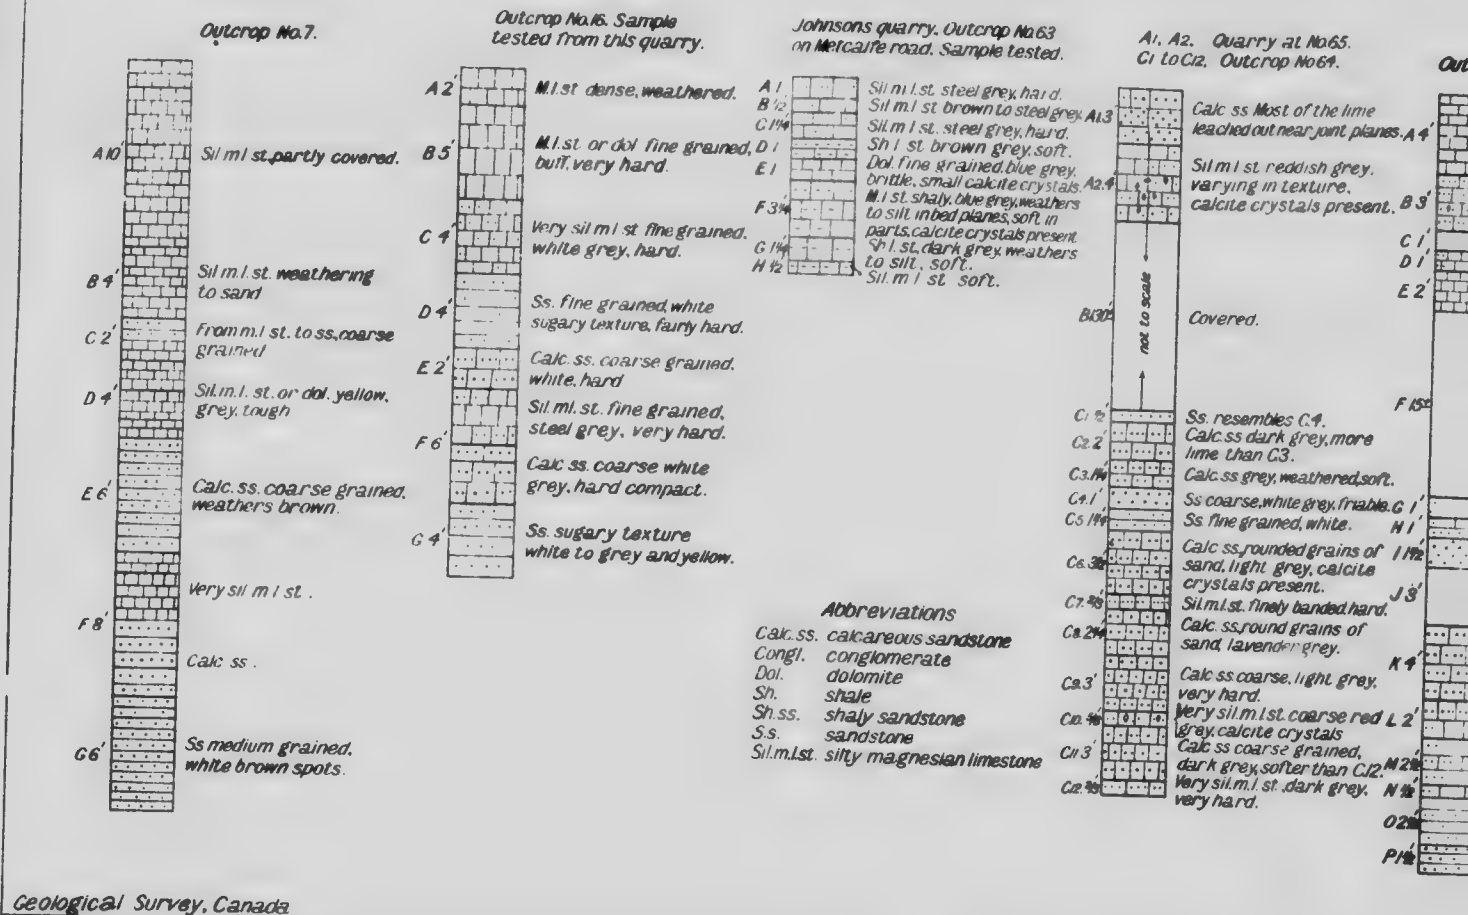 Outcrop No.7.
A 10'
Sil m l st, partly covered.
B 4'
Sil m.l. st. weathering
to sand
C 2'
From m.l st. to ss, coarse
grained
D 4'
Sil. m. l. st. or dol. yellow,
grey, tough
E 6'
Calc. ss. coarse grained,
weathers brown.
Very sil m l st.
F 8'
Calc ss.
G 6'
Ss medium grained,
white brown spots.
Outcrop No.16. Sample
tested from this quarry.
A 2'
M.l.st dense, weathered.
B 5'
M.l.st. or dol fine grained,
buff, very hard.
C 4'
Very sil m l st fine grained,
white grey, hard.
D 4'
Ss. fine grained, white
sugary texture, fairly hard.
E 2'
Calc. ss. coarse grained,
white, hard
Sil. ml. st. fine grained,
steel grey, very hard.
F 6'
Calc ss. coarse white
grey, hard compact.
G 4'
Ss. sugary texture
white to grey and yellow.
Johnsons quarry. Outcrop No.63
on Metcalfe road. Sample tested.
A 1'
Sil m l. st. steel grey, hard.
B 1/2'
Sil m. l st brown to steel grey.
C 1 1/4'
Sil m l st. steel grey, hard.
D 1'
Sh l st brown grey, soft.
E 1'
Dol. fine grained, blue grey,
brittle, small calcite crystals.
F 3 1/4'
M. l st. shaly, blue grey, weathers
to silt in bed planes, soft in
parts, calcite crystals present
G 1 1/4'
Sh l. st. dark grey, weathers
to silt, soft.
H 1/2'
Sil. m l st soft.
A1, A2. Quarry at No65.
C1 to C12, Outcrop No64.
A1.3'
Calc ss Most of the lime
leached out near joint planes.
A2.4'
Sil m l st reddish grey,
varying in texture,
calcite crystals present.
B130'
not to scale
Covered.
C1 1/2'
Ss. resembles C.4.
C2.2'
Calc. ss dark grey, more
lime than C3.
Calc. ss grey, weathered, soft.
C4.1'
Ss coarse, white grey, friable.
C5 1 1/4'
Ss. fine grained, white.
Calc ss, rounded grains of
sand, light grey, calcite
crystals present.
C7. 2/3'
Sil.m.l.st. finely banded, hard.
Calc. ss, round grains of
sand, lavender grey.
C9.3'
Calc ss coarse, light grey,
very hard.
Very sil. m. l st. coarse red
grey, calcite crystals
C11 3'
Calc ss coarse grained,
dark grey, softer than C12.
C12. 2/3'
Very sil. m. l. st. dark grey,
very hard.
Out
A 4'
B 3'
C 1'
D 1'
E 2'
F 15±
G 1'
H 1'
I 1 1/2'
J 3'
K 4'
L 2'
M 2 1/2'
N 1/2'
P 1 1/2'
Abbreviations
Calc. ss. calcareous sandstone
Congl. conglomerate
Dol. dolomite
Sh. shale
Sh. ss. shaly sandstone
S.s. sandstone
Sil. m.l.st. silty magnesian limestone
Geological Survey, Canada